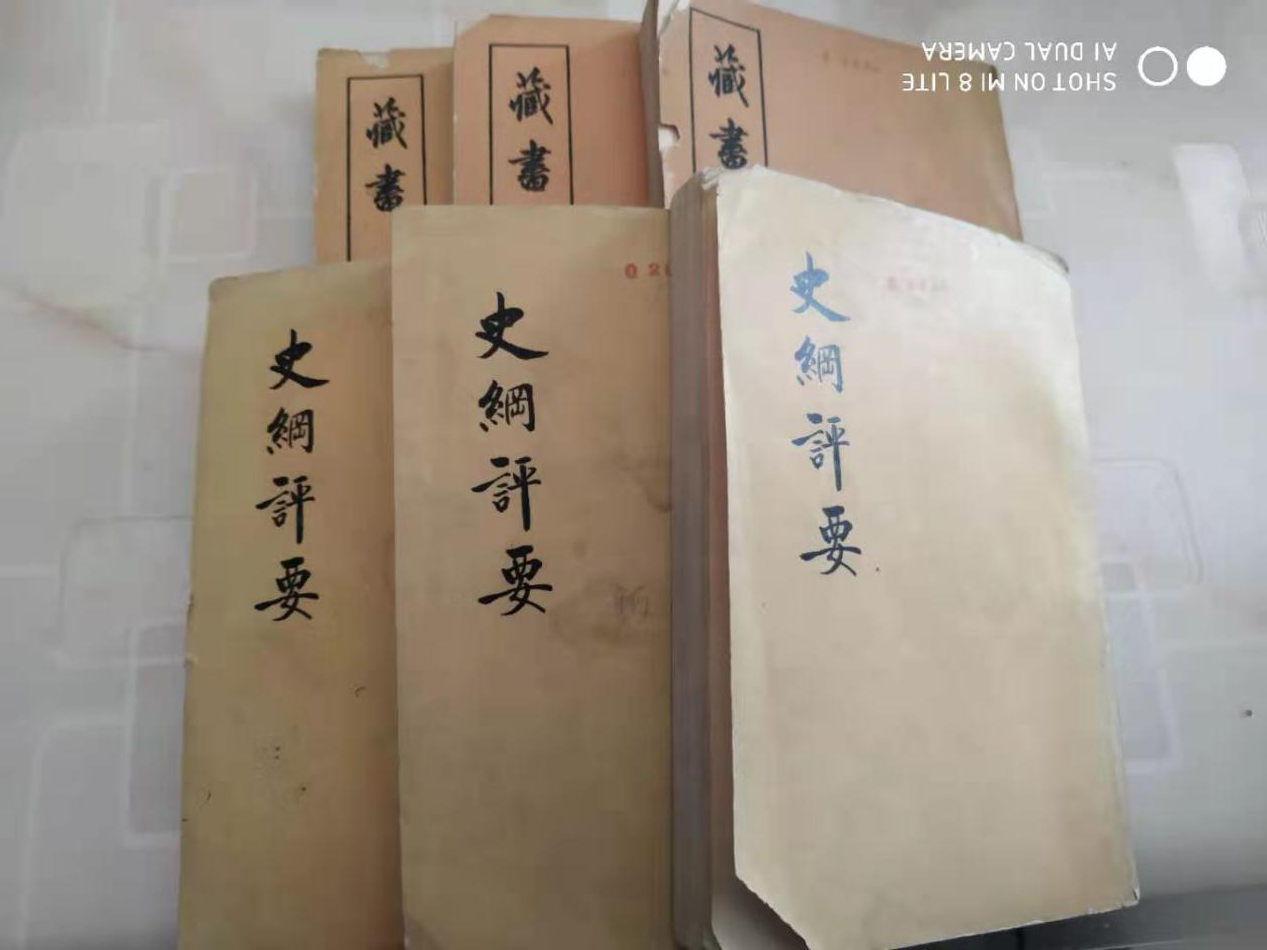 藏書
藏書
藏書
史綱評要
史綱評要
史綱評要
SHOT ON MI 8 LITE
AI DUAL CAMERA